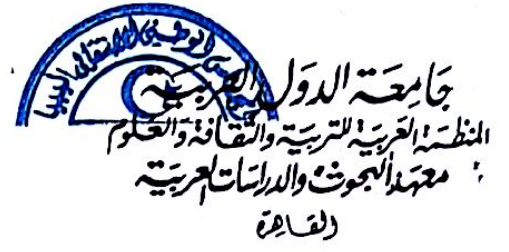 المجلس الوطني الانتقالي ليبيا
جَامِعَة الدوَل العَربيَّة
المنظمَة العَربيَة للتربيَة والثقافة والعلوم
معهد البحوث والدراسات العربية
القاهرة